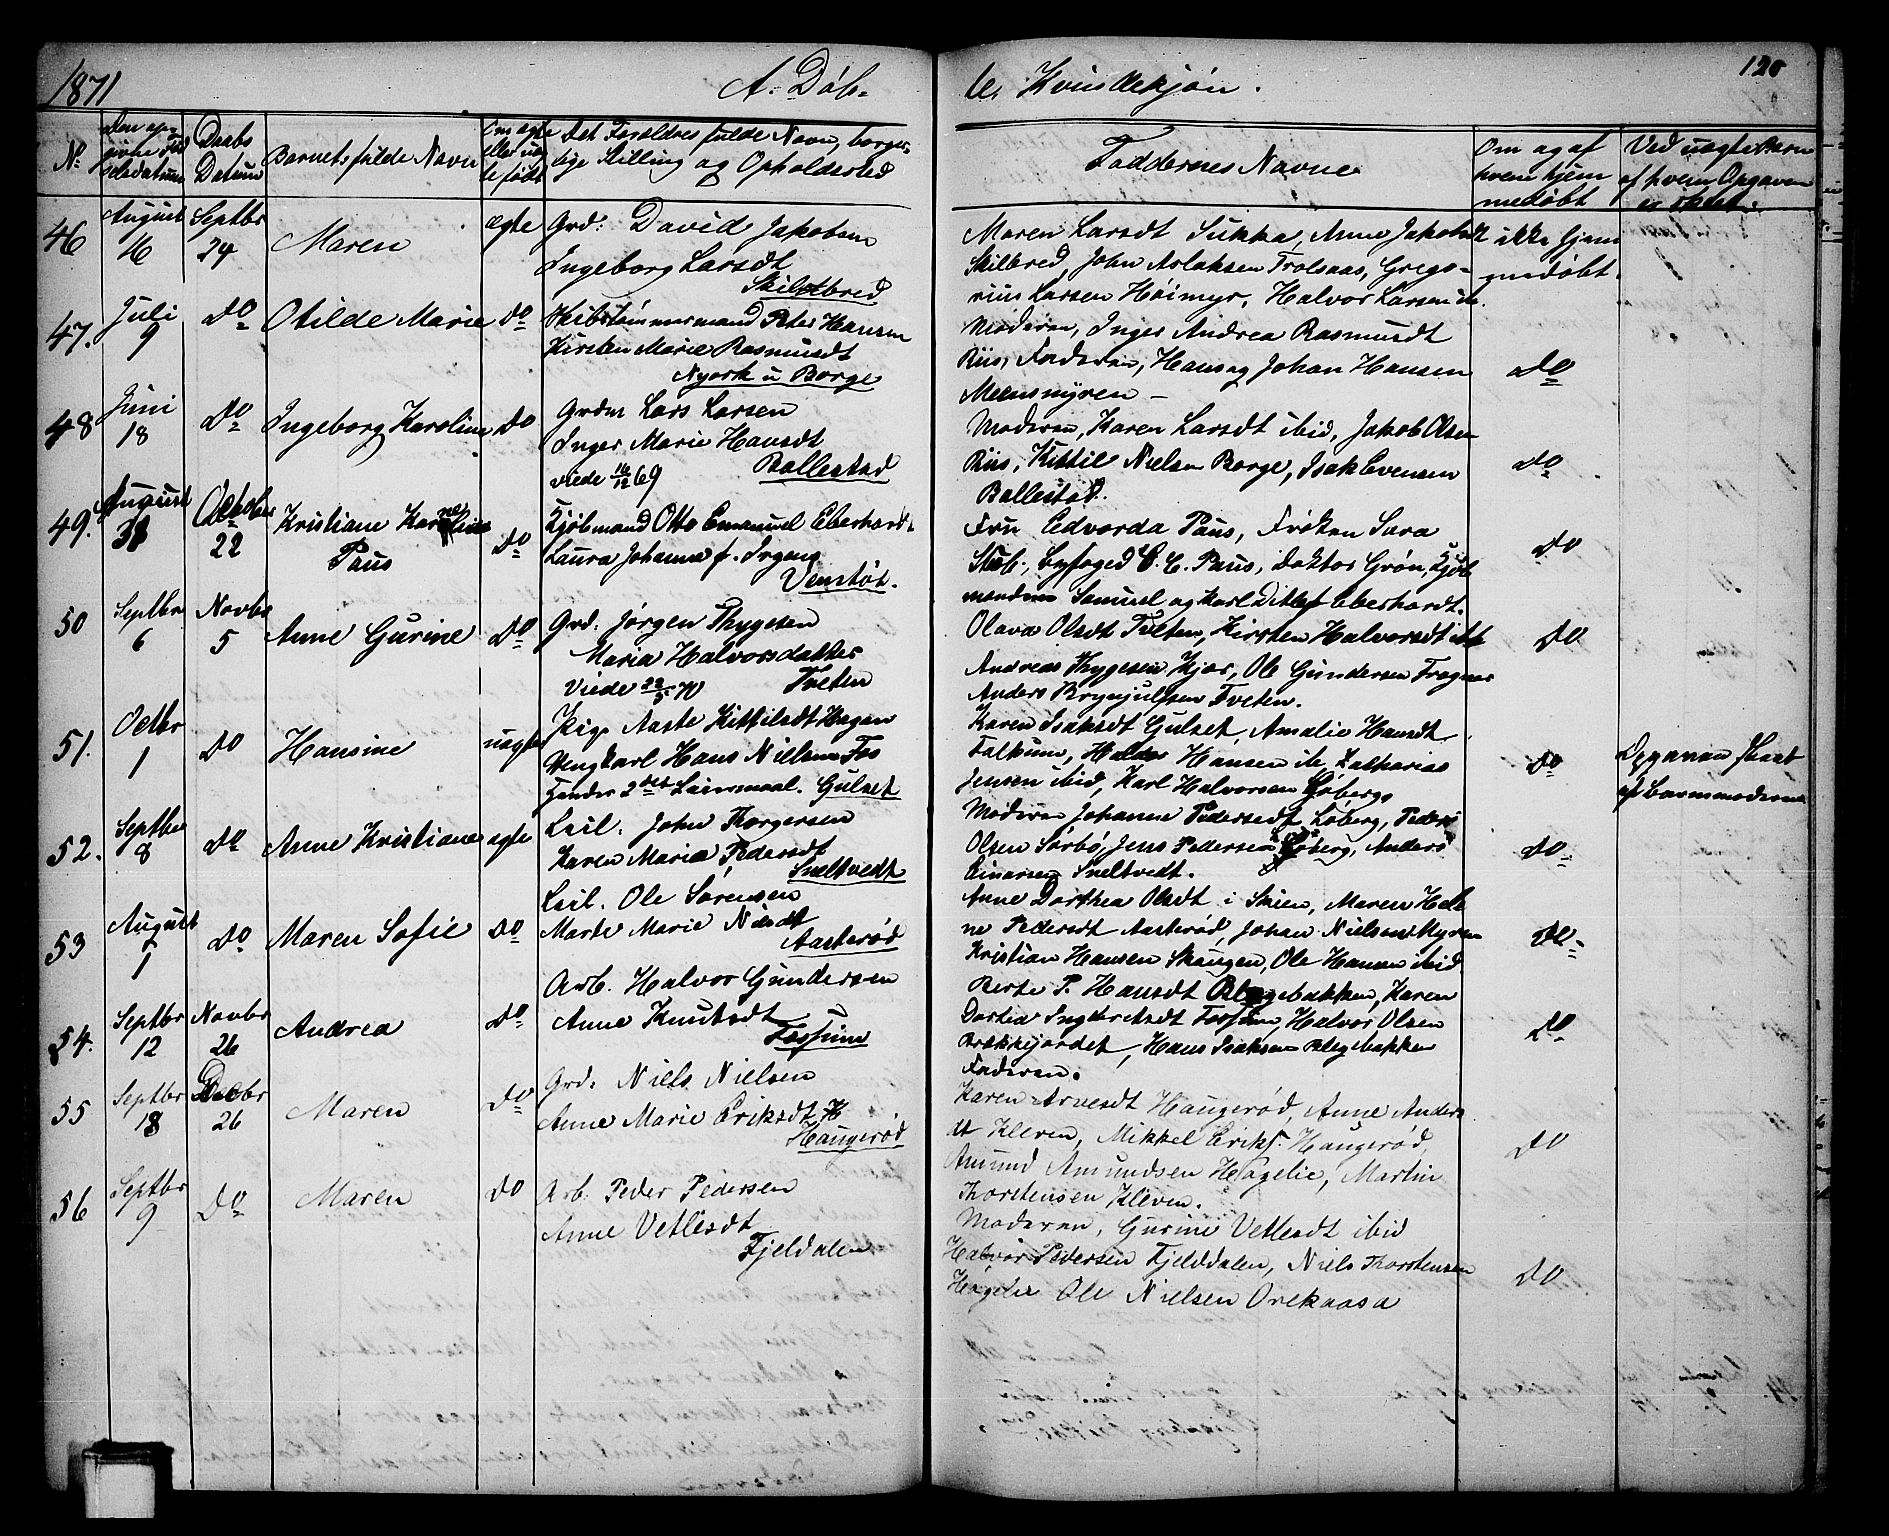 1871 A. Døb- te, Kvindekjøn. 120
No Den opgivne Fødselsdatum Daabs Datum Barnets fulde Navn Om ægte eller uægte født Det Forældres fulde Navn, borgerlige Stilling og Opholdssted Faddernes Navne Om og af hvem hjemmedøbt Ved uægte Børn af hvem Opgaven er sket.
46 August 16 Septbr 24 Maren ægte Grd: David Jakobsen
Ingeborg Larsdt
Skilbred
Maren Larsdt Sukka, Anne Jakobsdt
Skilbred, John Aslaksen Trolsaas, Grego-
rius Larsen Høimyr, Halvor Larsen ib.
ikke hjem
medøbt.
47. Juli 9 Do Otilde Marie Do Skibstømmermand Peter Hansen
Kirsten Marie Rasmusdt
Nyork u Borge
Moderen, Inger Andrea Rasmusdt
Riis, Faderen, Hans og Johan Hansen
Meensmyren —
Do
48 Juni 18 Do Ingeborg Karoline Do Grdm Lars Larsen
Inger Marie Hansdt
viede 16/12 69 Ballestad
Moderen, Karen Larsdt ibid, Jakob Olsen
Riis, Kittil Nielsen Borge, Isak Evensen
Ballestad.
Do
49. August 31 October 22 Kristiane Karoline
Paus
Do Kjøbmand Otto Emanuel Eberhardt
Laura Johanna f. Irgens
Venstøb.
Fru Edvarda Paus, Frøken Sara
Stub, Byfoged C. C. Paus, Doktor Grøn, Kjøb
mændene Samuel og Karl Ditlef Eberhardt.
Do
50 Septbr 6 Novbr 5 Anne Gurine Do Grd. Jørgen Thygesen
Maria Halvorsdatter
Viede 70 Tveten
Olava Olsdt Tveten, Kirsten Halvorsdt ibd
Andreas Thygesen Kjær, Ole Gundersen Trogner
Anders Brynjulfsen Tveten.
Do
51. Octbr 1 Do Hansine uægte Pige Aaste Kittilsdt Hagen
Ungkarl Hans Nielsen Fos
Hendes 2det Leiermaal. Gulset
Karen Isaksdt Gulset, Amalie Hansdt
Falkum, Halvor Hansen ib, Zakharias
Jensen ibid, Karl Halvorsen Løberg
Do Opgaven skeet
af Barnemoderen
52. Septber 8 Do Anne Kristiane ægte Leil. John Torgersen
Karen Maria Pedersdt
Sneltvedt
Moderen Johanne Pedersdt Løberg, Peder
Olsen Sørbø, Jens Pedersen Løberg, Anders
Einarsen Sneltvedt.
Do
53 August 1 Do Maren Sofie Do Leil. Ole Sørensen
Marte Marie Nilsdt
Aasterød
Anne Dorthea Olsdt i Skien, Maren Hele
ne Pedersdt Aasterød, Johan Nielsen Myren
Kristian Hansen Skaugen, Ole Hansen ibid
Do
54. Septbr 12 Novbr 26 Andrea Do Arb. Halvor Gundersen
Anne Knutsdt
Fossum
Berte P. Hansdt Blegebakken, Karen
Dortia Ingebretsdt Fossum, Halvor Olsen
Brækkejordet, Hans Isaksen Blegebakken
Faderen.
Do
55 Septbr 18 Decbr 26 Maren Do Grd. Niels Nielsen
Anne Marie Eriksdt H
Haugerød
Karen Arnesdt Haugerød, Anne Anders
dt Kleven, Mikkel Eriks. Haugerød,
Amund Amundsen Høgelie, Martin
Thorstensen Kleven.
Do
56 Septbr 9 Do Maren Do Arb. Peder Pedersen
Anne Vetlesdt
Fjeldalen
Moderen, Gurine Vetlesdt ibid
Halvor Pedersen Fjelddalen, Niels Thorstensen
Høgelie Ole Nielsen Orekaasa
Do